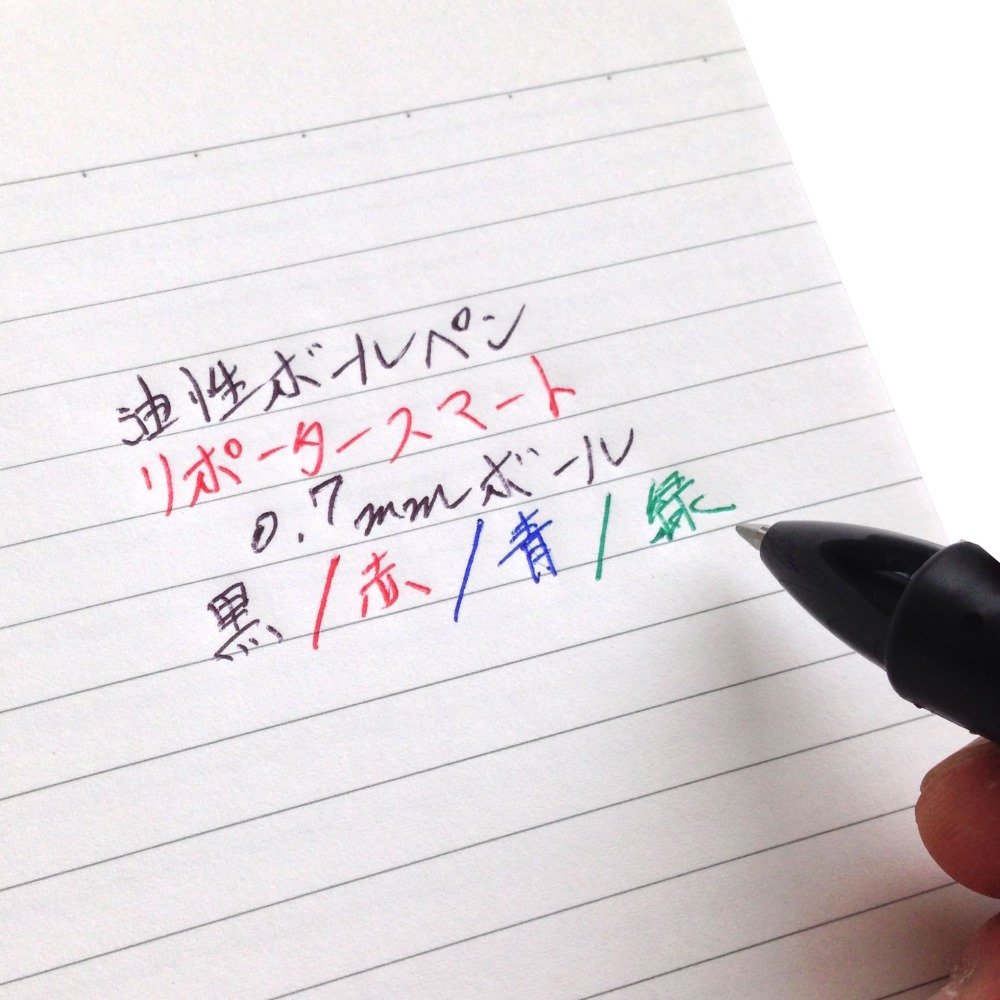 油性ボールペン
リポータースマート
0.7mmボール
黒/赤/青/緑